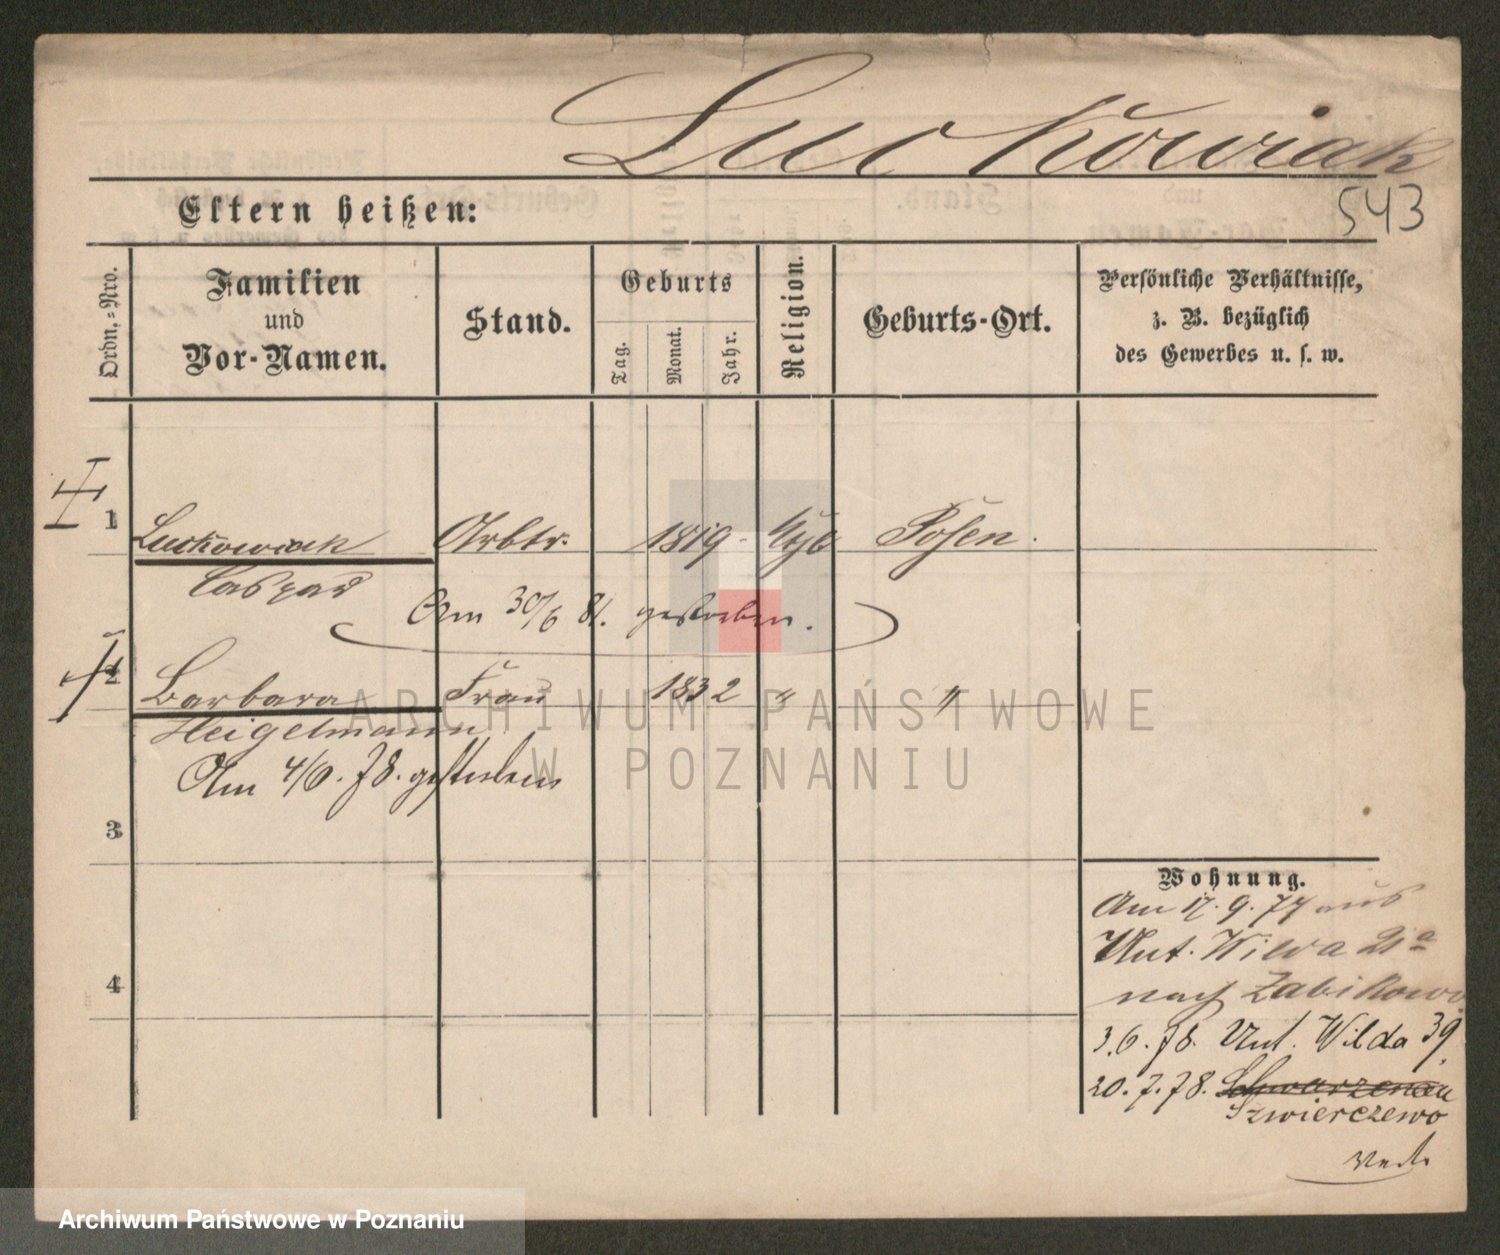 Luckowiak
Eltern heißen:
543
Ordn.-Nro.
Familien
und
Vor-Namen.
Stand.
Geburts
Tag.
Monat.
Jahr.
Religion.
Geburts-Ort.
Persönliche Verhältnisse,
z. B. bezüglich
des Gewerbes u. s. w.
1 Luckowiak Arbtr. 1819 - kth Posen.
Caspar
Am 30/6 81. gestorben.
2 Barbara Frau 1832 " "
Heigelmann
Am 4/6. 78. gestorben
3
4
Wohnung.
Am 17. 9. 77 aus
Unt. Wilda 21a
nach Zabikowo
3. 6. 78. Unt. Wilda 39.
20. 7. 78. Schwarzenau
Szwierczewo
ARCHIWUM PAŃSTWOWE
W POZNANIU
Archiwum Państwowe w Poznaniu